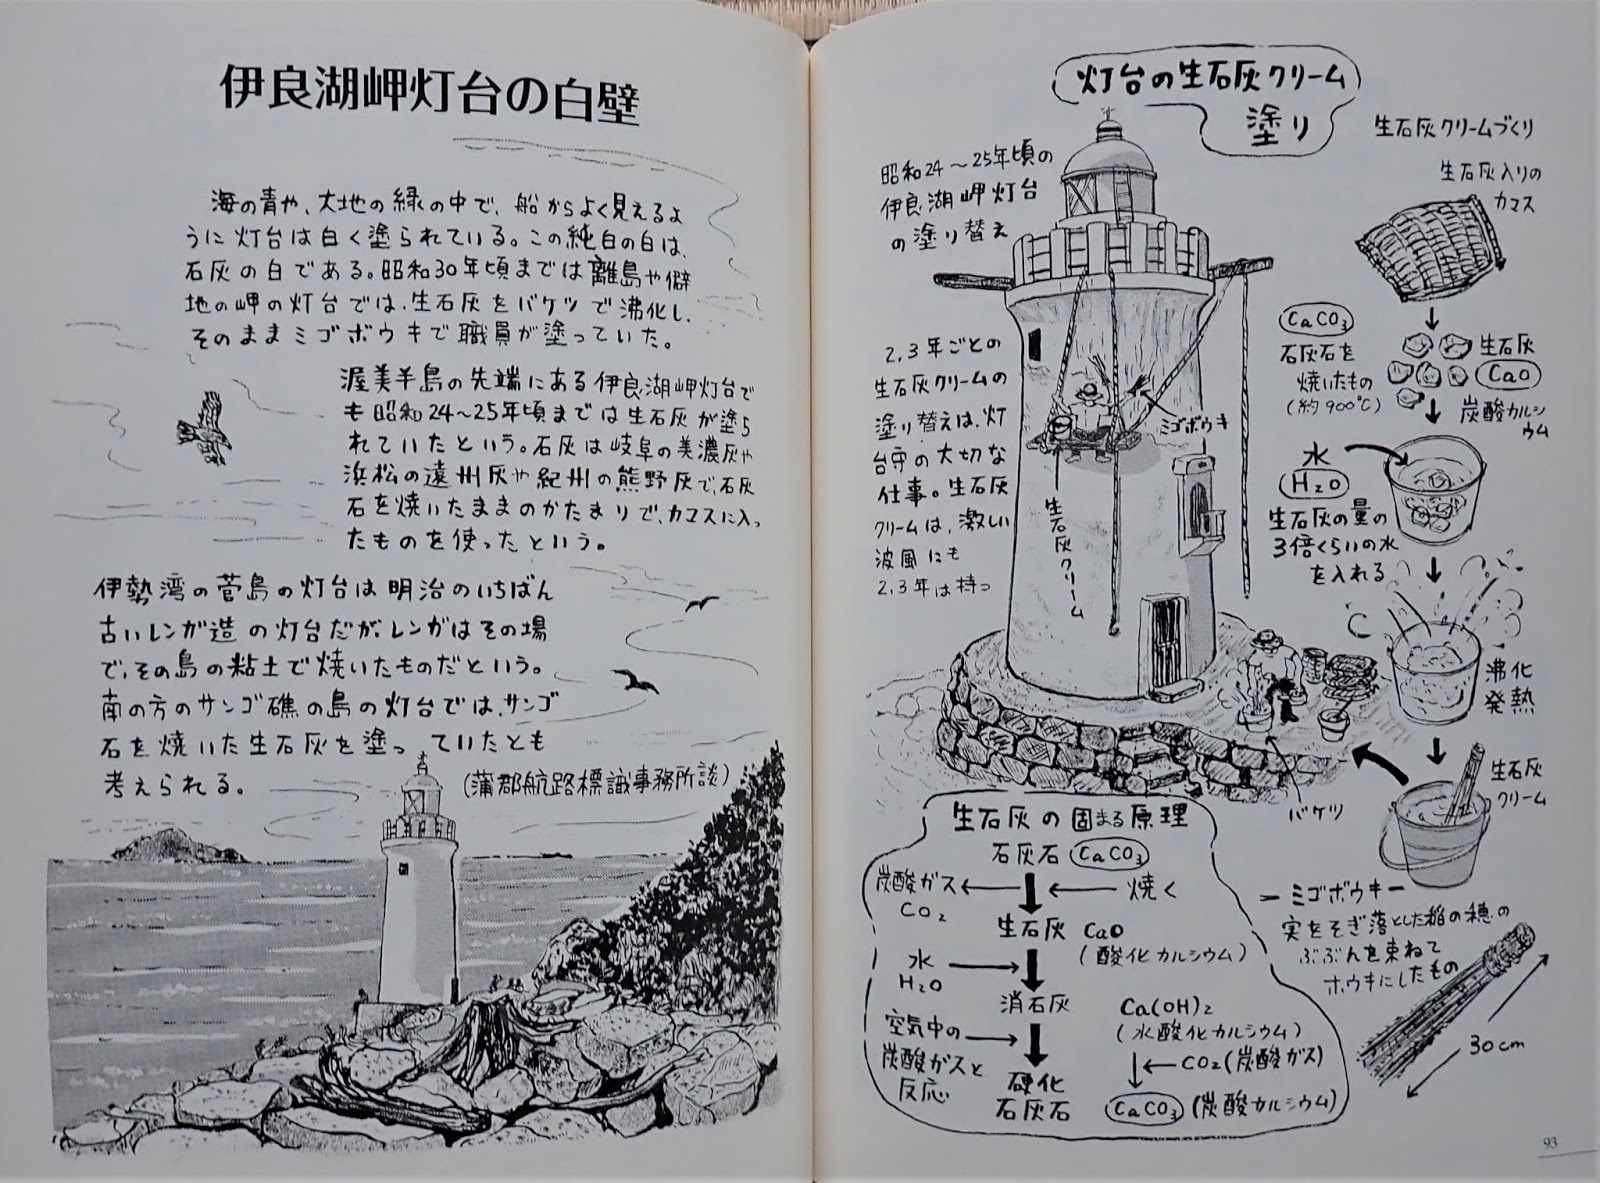 伊良湖岬灯台の白壁
海の青や、大地の緑の中で、船からよく見えるよ
うに灯台は白く塗られている。この純白の白は、
石灰の白である。昭和30年頃までは離島や僻
地の岬の灯台では、生石灰をバケツで沸化し、
そのままミゴボウキで職員が塗っていた。
渥美半島の先端にある伊良湖岬灯台で
も昭和24〜25年頃までは生石灰が塗ら
れていたという。石灰は岐阜の美濃灰や
浜松の遠州灰や紀州の熊野灰で、石灰
石を焼いたままのかたまりで、カマスに入っ
たものを使ったという。
伊勢湾の菅島の灯台は明治のいちばん
古いレンガ造の灯台だが、レンガはその場
で、その島の粘土で焼いたものだという。
南の方のサンゴ礁の島の灯台では、サンゴ
石を焼いた生石灰を塗っていたとも
考えられる。
(蒲郡航路標識事務所談)
灯台の生石灰クリーム
塗り
昭和24〜25年頃の
伊良湖岬灯台
の塗り替え
2,3年ごとの
生石灰クリームの
塗り替えは、灯
台守の大切な
仕事。生石灰
クリームは、激しい
波風にも
2,3年は持つ
ミゴボウキ
生石灰クリーム
バケツ
生石灰クリームづくり
生石灰入りの
カマス
CaCO3
石灰石を
焼いたもの
(約900℃)
生石灰
CaO
炭酸カルシ
ウム
水
H2O
生石灰の量の
3倍くらいの水
を入れる
沸化
発熱
生石灰
クリーム
生石灰の固まる原理
石灰石 CaCO3
炭酸ガス
CO2
焼く
生石灰 CaO
(酸化カルシウム)
水
H2O
消石灰 Ca(OH)2
(水酸化カルシウム)
空気中の
炭酸ガスと
反応
CO2(炭酸ガス)
硬化
石灰石
CaCO3 (炭酸カルシウム)
ーミゴボウキー
実をそぎ落とした稲の穂の
ぶぶんを束ねて
ホウキにしたもの
30cm
93